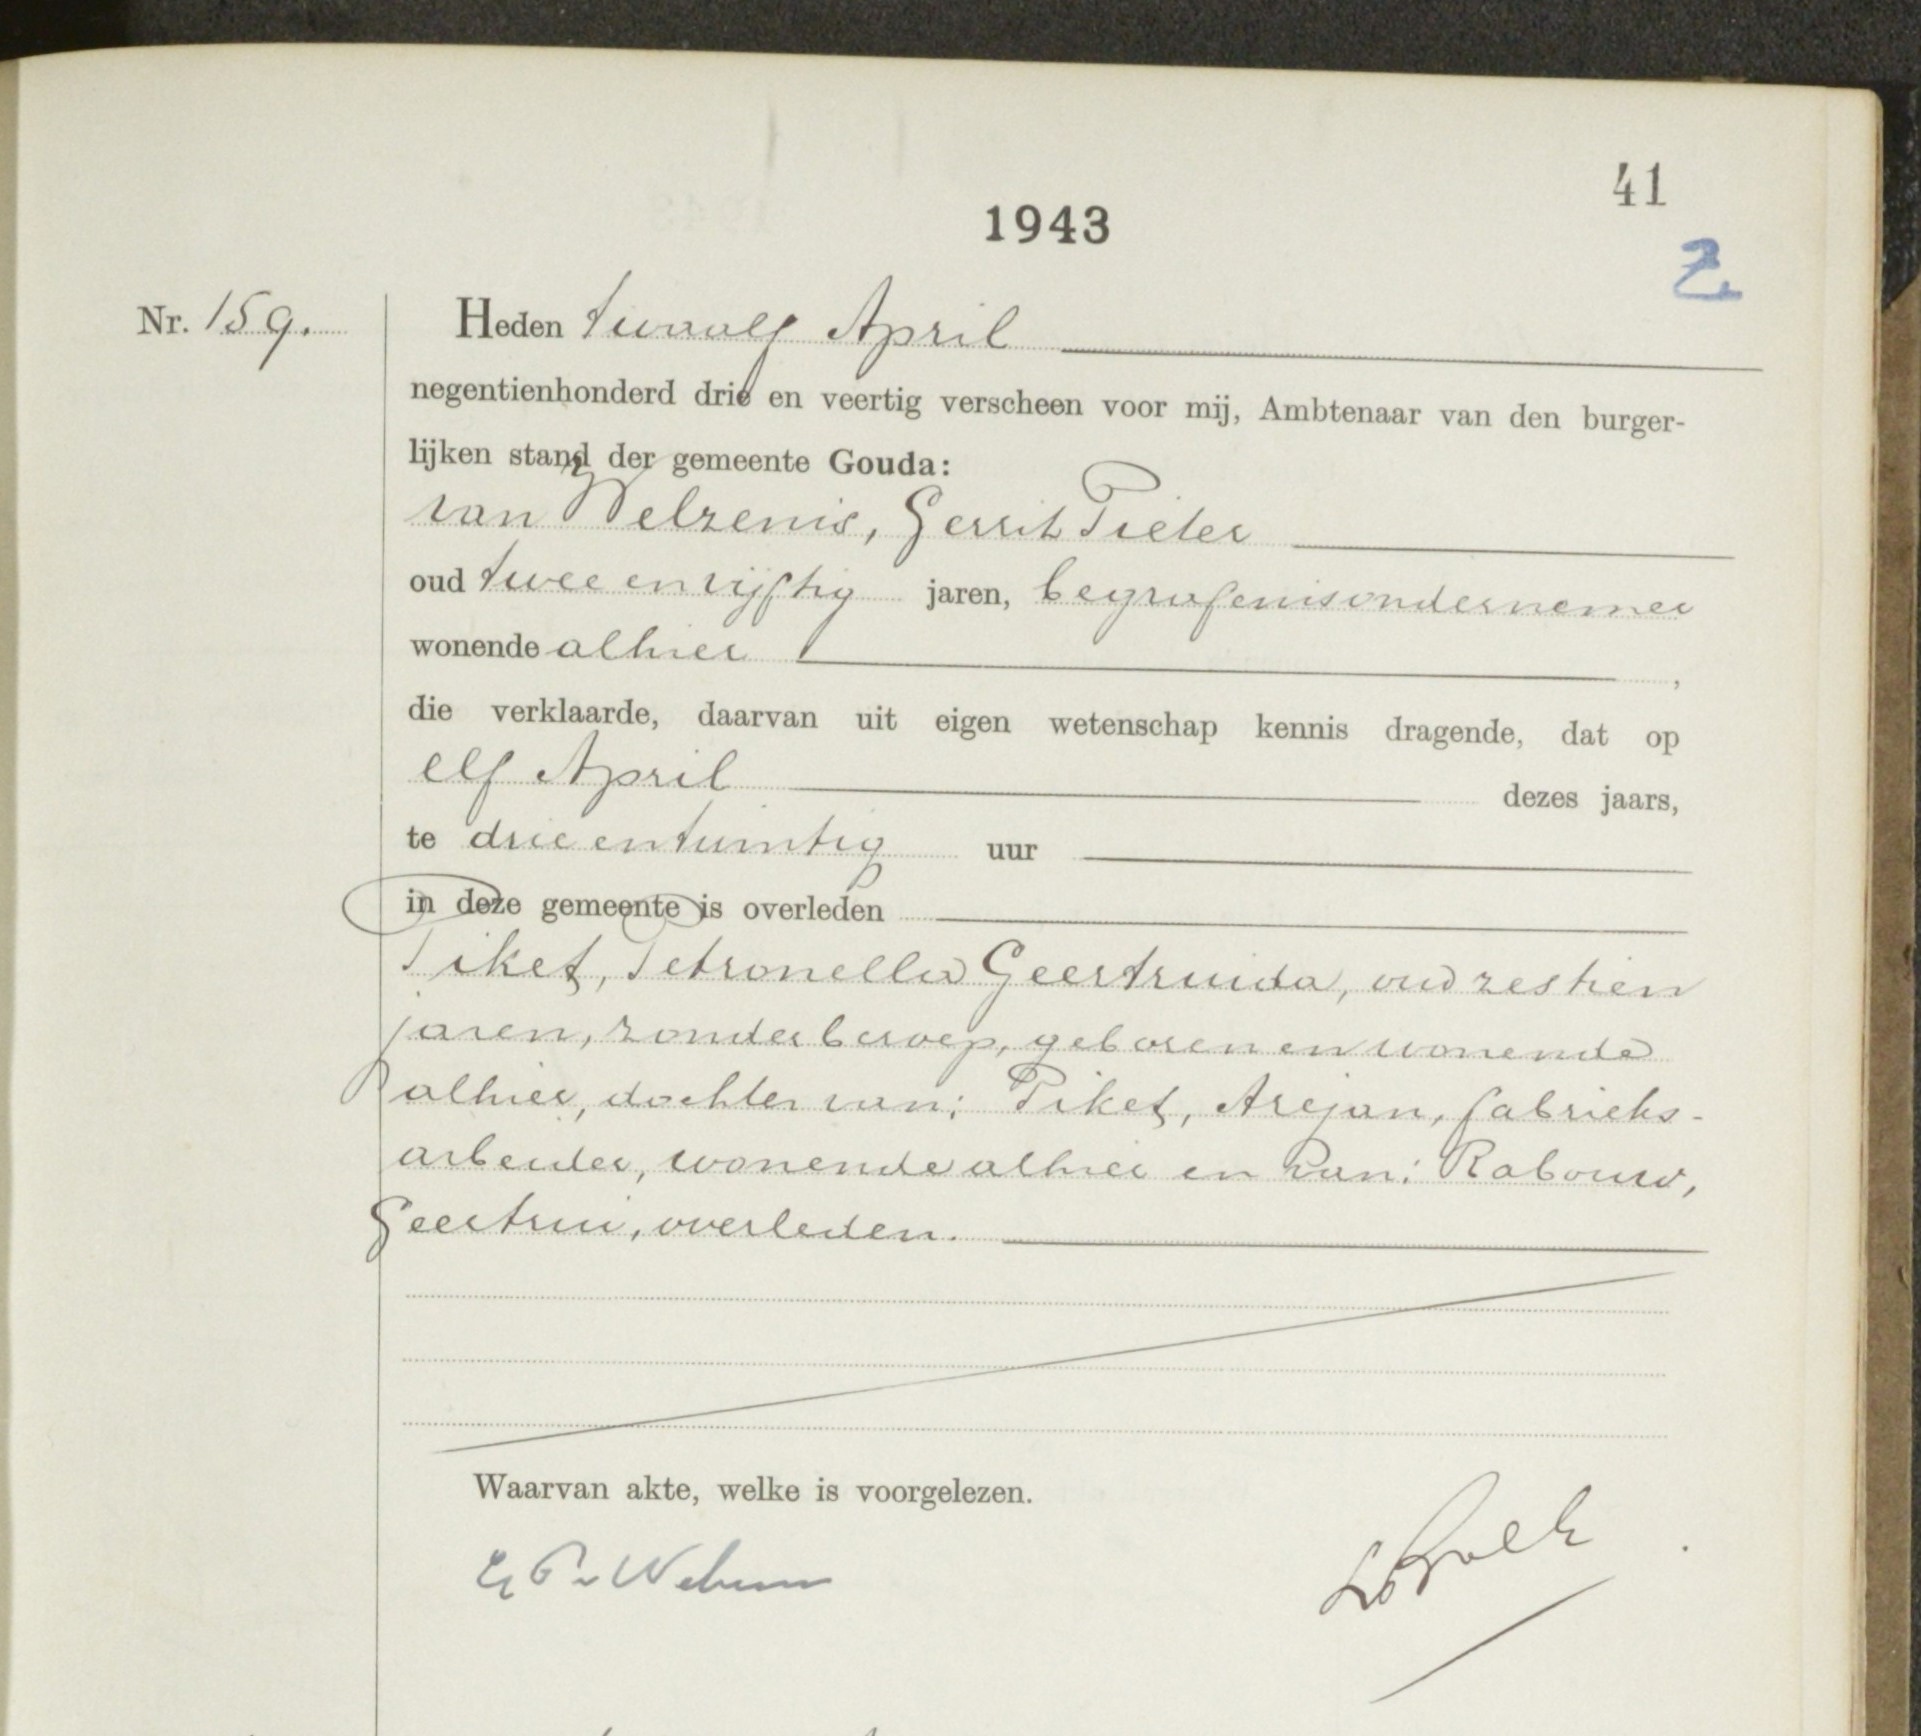 41
1943
Z.
Nr. 159.
Heden twaalf April
negentienhonderd drie en veertig verscheen voor mij, Ambtenaar van den burger-
lijken stand der gemeente Gouda:
van Welzenis, Gerrit Pieter
oud twee en vijftig jaren, begrafenisondernemer
wonende alhier ,
die verklaarde, daarvan uit eigen wetenschap kennis dragende, dat op
elf April dezes jaars,
te drie en twintig uur
in deze gemeente is overleden
Piket, Petronella Geertruida, oud zestien
jaren, zonder beroep, geboren en wonende
alhier, dochter van: Piket, Arejan, fabrieks-
arbeider, wonende alhier en van: Rabouw,
Geertrui, overleden.
Waarvan akte, welke is voorgelezen.